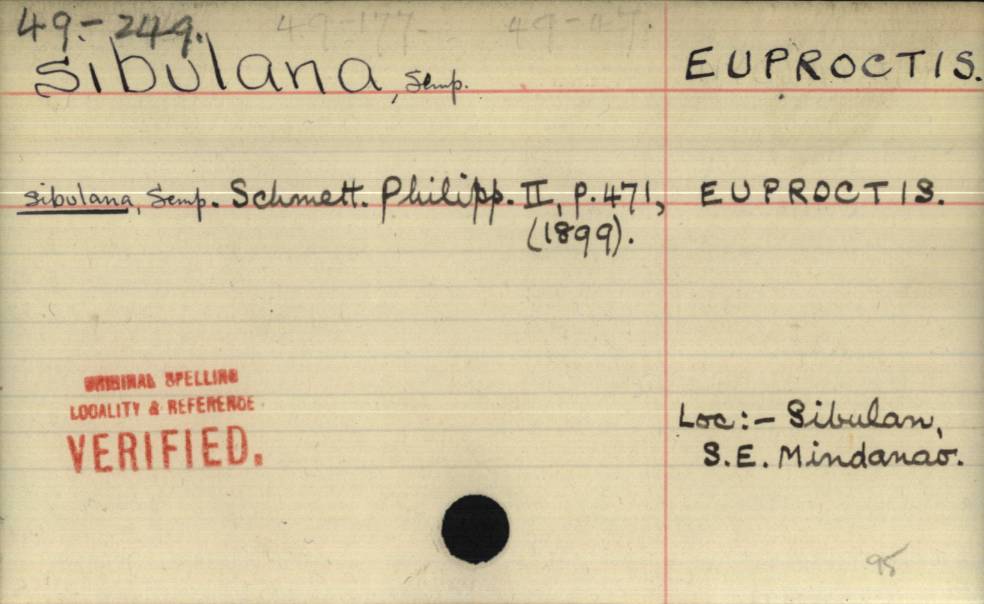 49.-249. 49-177- 49-47.
sibulana, Semp. EUPROCTIS.
sibulana, Semp. Schmett. Philipp. II, p. 471, EUPROCTIS.
(1899).
ORIGINAL SPELLING
LOCALITY & REFERENCE
VERIFIED.
Loc:- Sibulan,
S.E. Mindanao.
95